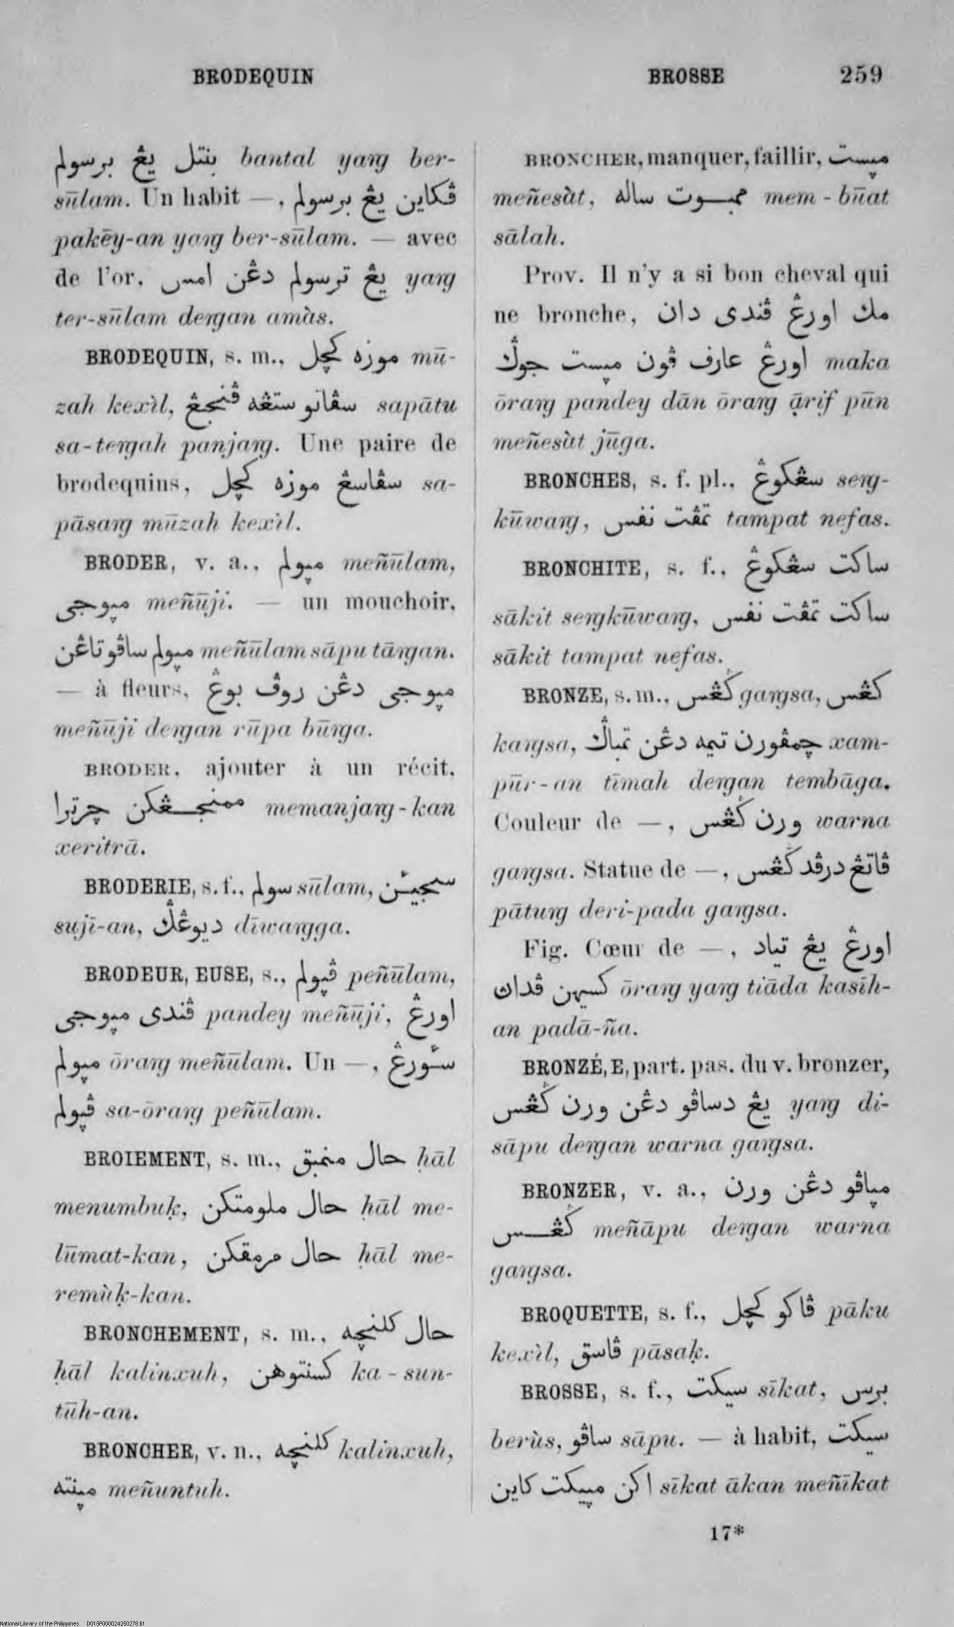 BRODEQUIN BROSSE 259
بنتل يڠ برسولم bantal yaɪg ber-
sūlam. Un habit —, ڤكاين يڠ برسولم
pakēy-an yaɪg ber-sūlam. — avec
de l'or, يڠ ترسولم دڠن امس yaɪg
ter-sūlam deɪgan amàs.
BRODEQUIN, s. m., موزه كچل mū-
zah kexìl, سڤاتو ستڠه ڤنجڠ sapātu
sa-teɪgah panjaɪg. Une paire de
brodequins, سڤاسڠ موزه كچل sa-
pāsaɪg mūzah kexìl.
BRODER, v. a., مڽولم meñūlam,
مڽوجى meñūji. — un mouchoir,
مڽولم ساڤو تاڠن meñūlam sāpu tāɪgan.
— à fleurs, مڽوجى دڠن روڤ بوڠ
meñūji deɪgan rūpa būɪga.
BRODER, ajouter à un récit,
ممنجڠكن چرترا memanjaɪg-kan
xeritrā.
BRODERIE, s. f., سولم sūlam, سجيئن
suji-an, ديوڠڬ dīwaɪgga.
BRODEUR, EUSE, s., ڤڽولم peñūlam,
ڤندى مڽوجى pandey meñūji, اورڠ
مڽولم ōraɪg meñūlam. Un —, سئورڠ
ڤڽولم sa-ōraɪg peñūlam.
BROIEMENT, s. m., حال منمبق ḥāl
menumbuḳ, حال ملومتكن ḥāl me-
lūmat-kan, حال مرمقكن ḥāl me-
remùḳ-kan.
BRONCHEMENT, s. m., حال كلنچه
ḥāl kalinxuh, كسنتوهن ka-sun-
tūh-an.
BRONCHER, v. n., كلنچه kalinxuh,
مڽنته meñuntuh.
BRONCHER, manquer, faillir, مڽست
meñesàt, ممبوت ساله mem-būat
sālah.
Prov. Il n'y a si bon cheval qui
ne bronche, مك اورڠ ڤندى دان
اورڠ عارف ڤون مڽست جوڬ maka
ōraɪg pandey dān ōraɪg ạ̄rif pūn
meñesàt jūga.
BRONCHES, s. f. pl., سڠكوڠ seɪg-
kūwaɪg, تمڤت نفس tampat nefas.
BRONCHITE, s. f., ساكت سڠكوڠ
sākit seɪgkūwaɪg, ساكت تمڤت نفس
sākit tampat nefas.
BRONZE, s. m., ڬڠس gaɪgsa, كڠس
kaɪgsa, چمڤورن تيمه دڠن تمباڬ xam-
pūr-an tīmah deɪgan tembāga.
Couleur de —, ورن ڬڠس warna
gaɪgsa. Statue de —, ڤاتڠ درڤد ڬڠس
pātuɪg deri-pada gaɪgsa.
Fig. Cœur de —, اورڠ يڠ تياد
كسيهن ڤداڽ ōraɪg yaɪg tiāda kasīh-
an padā-ña.
BRONZÉ, E, part. pas. du v. bronzer,
يڠ دساڤو دڠن ورن ڬڠس yaɪg di-
sāpu deɪgan warna gaɪgsa.
BRONZER, v. a., مڽاڤو دڠن ورن
ڬڠس meñāpu deɪgan warna
gaɪgsa.
BROQUETTE, s. f., ڤاكو كچل pāku
kexìl, ڤاسق pāsaḳ.
BROSSE, s. f., سيكت sīkat, برس
berùs, ساڤو sāpu. — à habit, سيكت
اكن مڽيكت كاين sīkat ākan meñīkat
17*
National Library of the Philippines